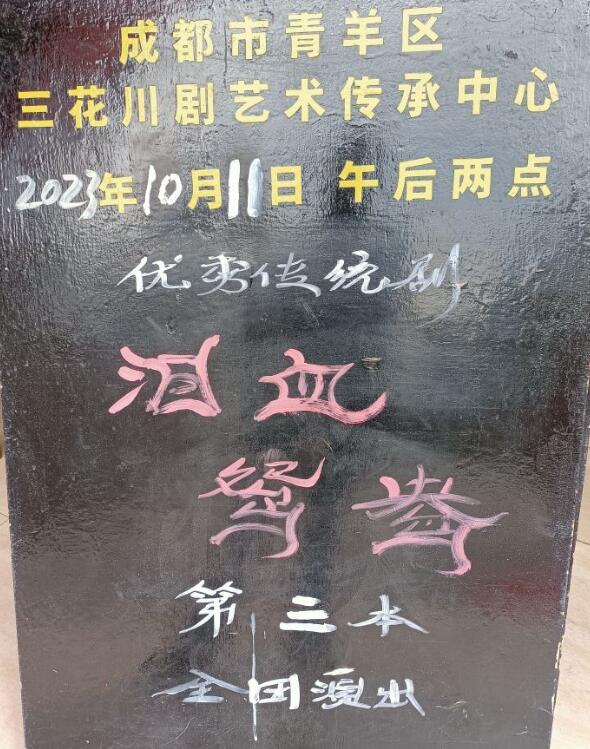 成都市青羊区
三花川剧艺术传承中心
2023年10月11日 午后两点
优秀传统剧
泪血
鸳鸯
第三本
全团演出